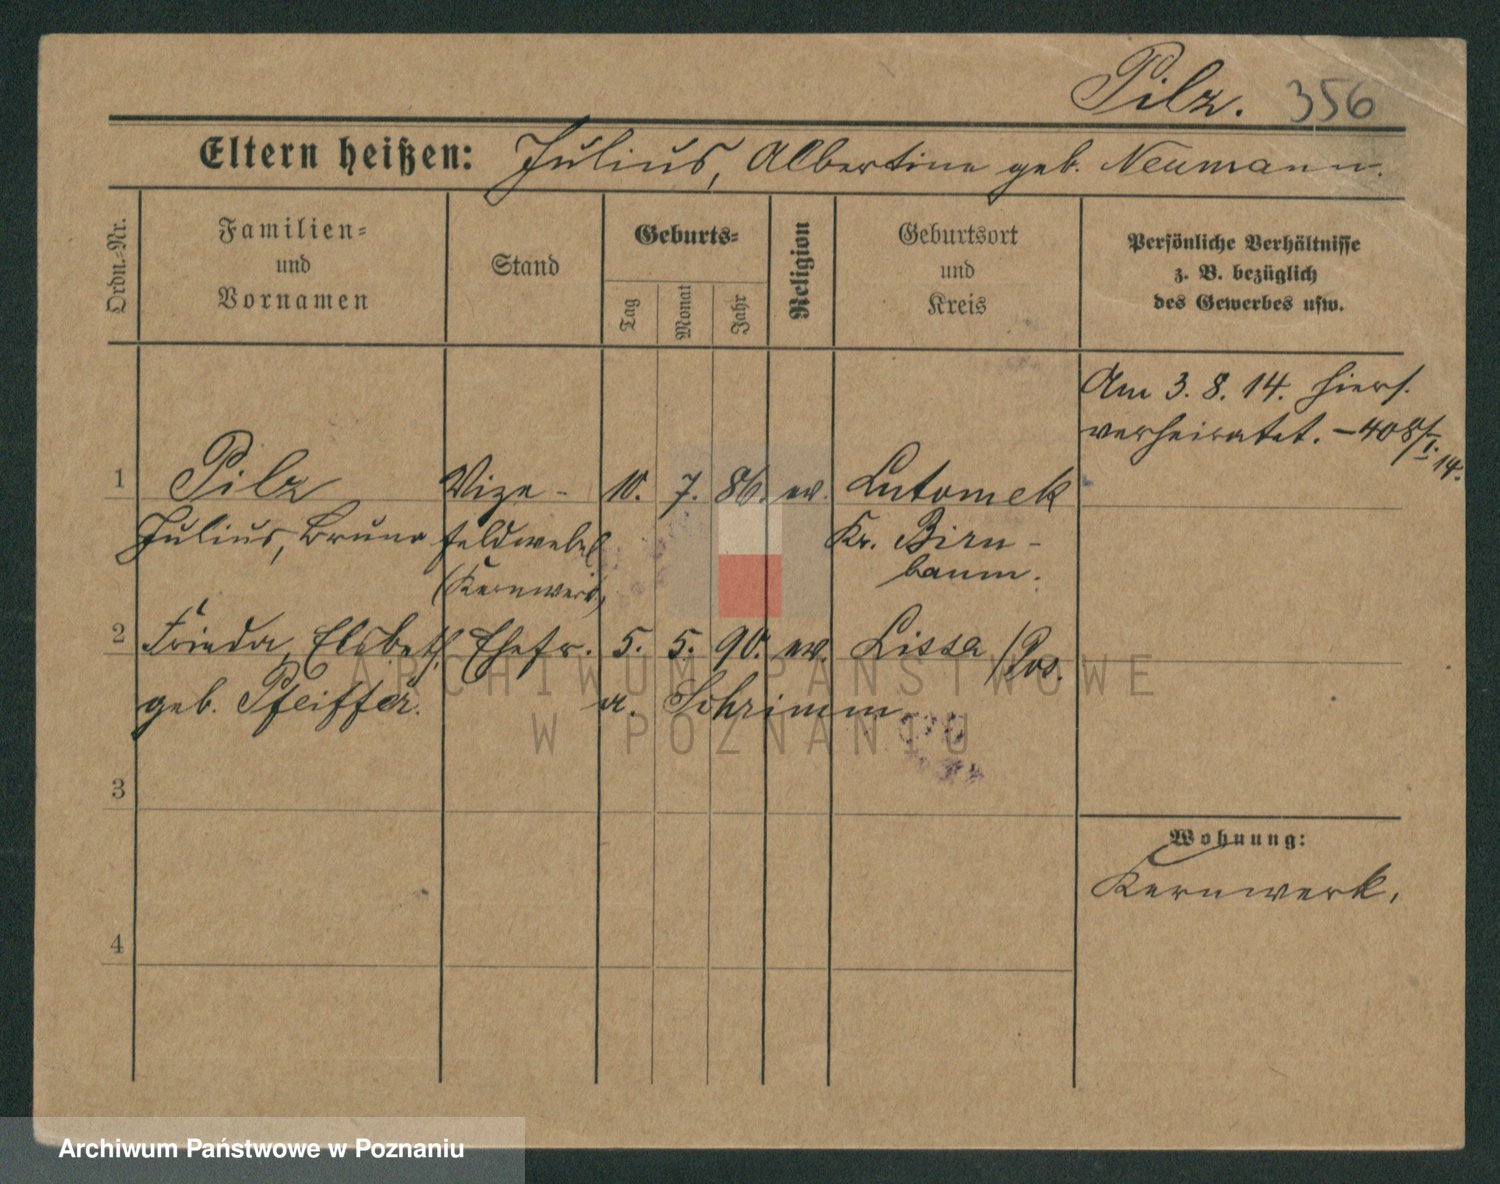 Pilz. 356
Eltern heißen: Julius, Albertine geb. Neumann.
Ordn.-Nr.
Familien-
und
Vornamen
Stand
Geburts-
Tag
Monat
Jahr
Religion
Geburtsort
und
Kreis
Persönliche Verhältnisse
z. B. bezüglich
des Gewerbes usw.
Am 3. 8. 14. hiers.
verheiratet. - 408/I.
14.
1 Pilz Vize- 10. 7. 86. ev. Lutomek
Julius, Bruno feldwebel Kr. Birn-
baum.
2 Frieda, Elsbeth Ehefr. 5. 5. 90. ev. Lissa /Pos.
geb. Pfeiffer. a. Schrimm
3
4
Wohnung:
Kernwerk.
ARCHIWUM PAŃSTWOWE
W POZNANIU
Archiwum Państwowe w Poznaniu